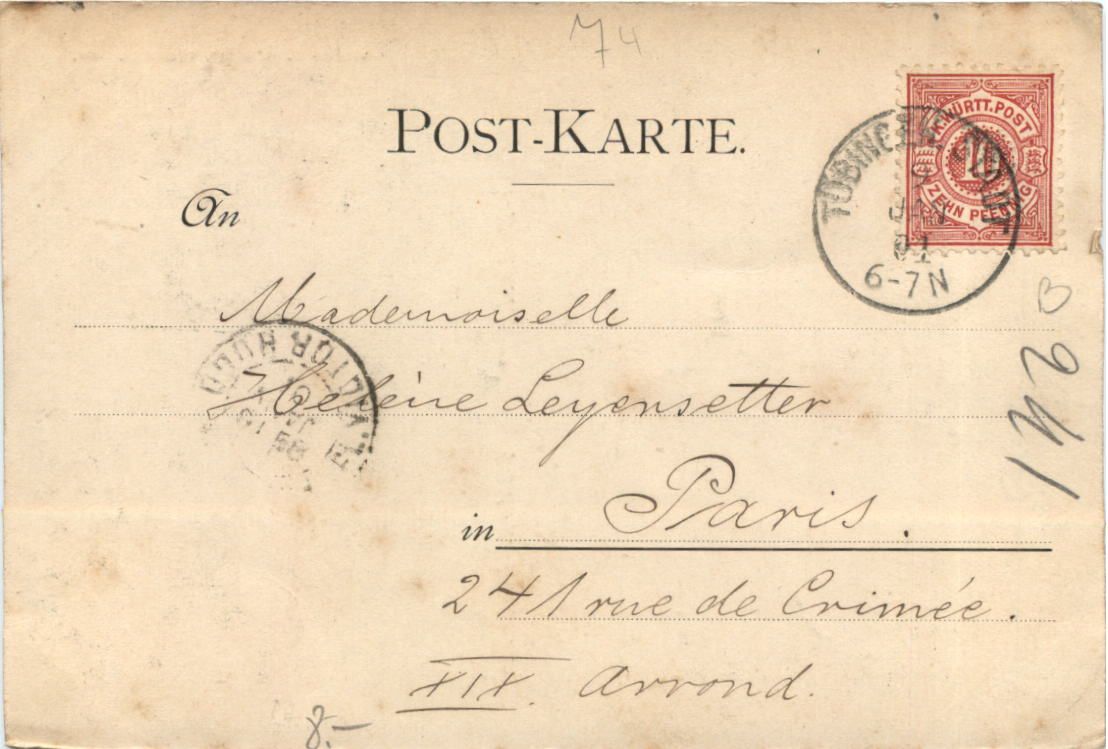 74
POST-KARTE.
K. WÜRTT. POST
ZEHN PFENNIG
TÜBINGEN
JAN
01
6-7 N
An
Mademoiselle
Hélène Leyensetter
VICTOR HUGO
in Paris.
241 rue de Crimée.
XIX Arrond.
8.-